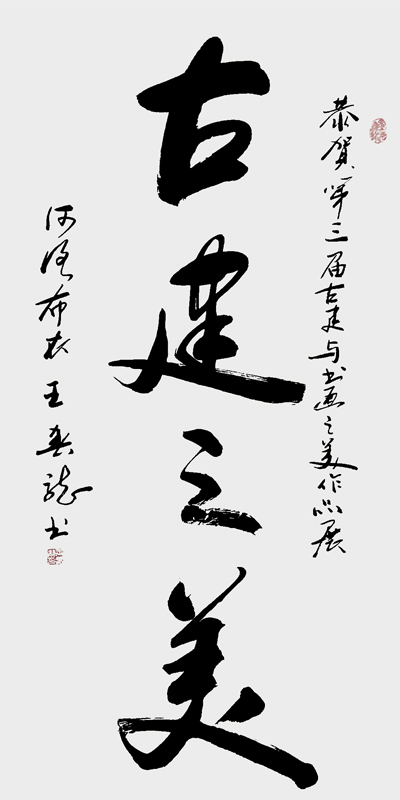 恭贺第三届古建与书画之美作品展
古建之美
河洛布衣王春龙书